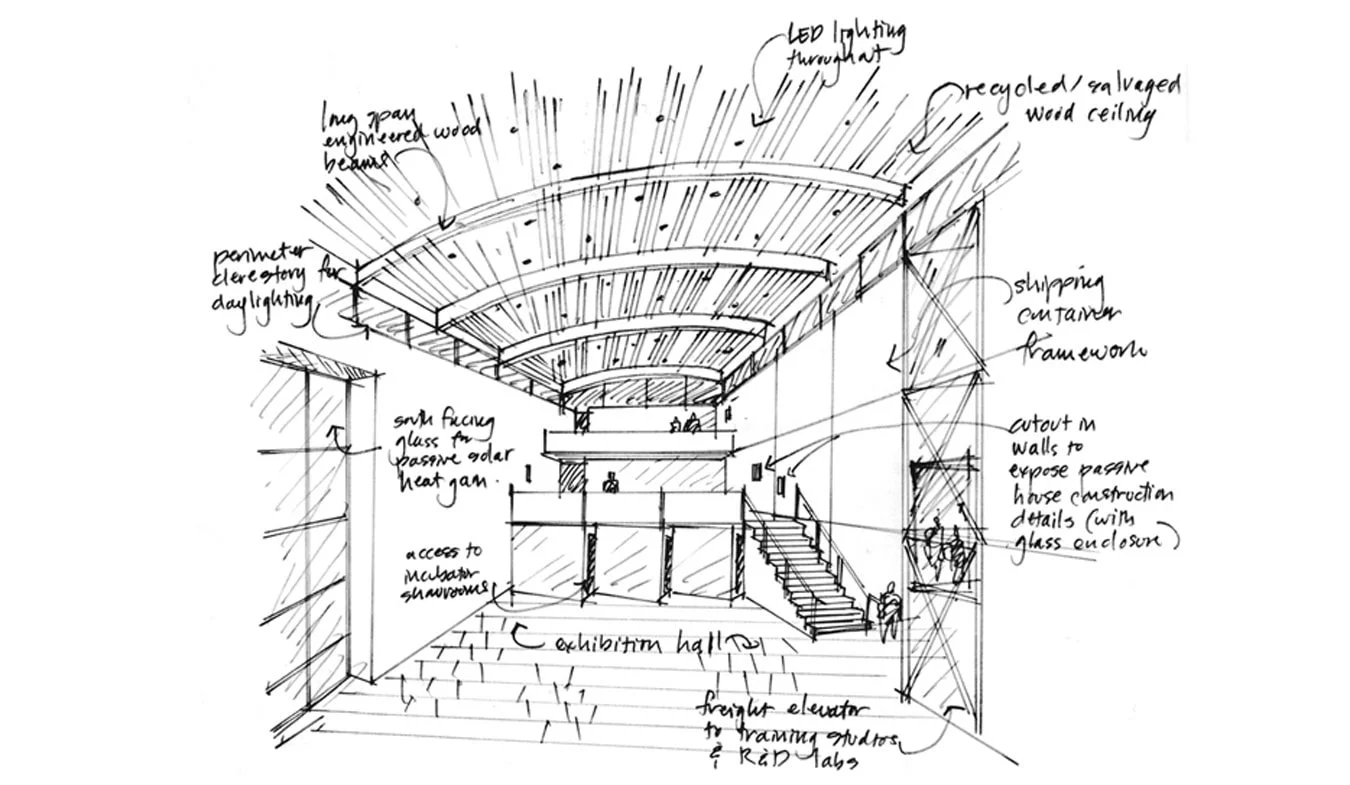 LED lighting
throughout
recycled/salvaged
wood ceiling
long span
engineered wood
beams
perimeter
clerestory for
daylighting
shipping
container
framework
south facing
glass for
passive solar
heat gain.
cutout in
walls to
expose passive
house construction
details (with
glass enclosure)
access to
incubator
showrooms
exhibition hall
freight elevator
to training studios
& R&D labs